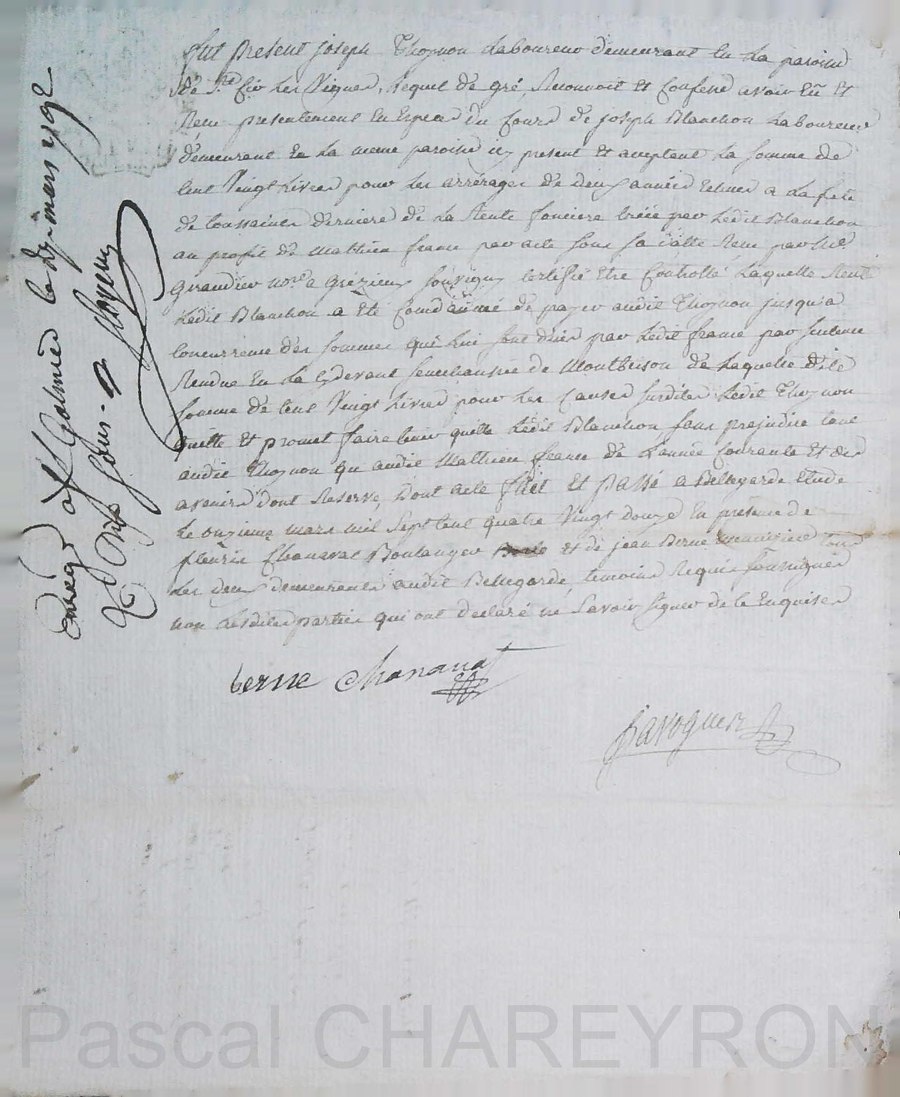 fut présent joseph Thognon Laboureur demeurant en La paroisse
de St Cir Les Vignes, Lequel de gré Reconnoit et Confesse avoir Eû et
Reçu presentement En Espece du Cours de joseph Blanchon Laboureur
demeurant en La meme paroisse ici present et aceptant La somme de
Cent Vingt Livres pour Les arrérages de deux années Echues a La fete
de toussaints derniere de La Rente fonciere Créée par Ledit Blanchon
au profit de Mathieu france par acte sous sa datte Reçu par Me
Girandier nore a Grézieux Souvigny Certifié Etre Controllé Laquelle Rente
Ledit Blanchon a été Condamné de payer audit Thognon jusqu'a
Concurrence des sommes qui Lui sont dües par Ledit france par sentence
Rendue en La cydevant Senechaussée de Montbrison de Laquelle dite
somme de Cent Vingt Livres pour Les Causes susdites Ledit Thognon
quitte et promet faire tenir quitte Ledit Blanchon sans prejudice tant
audit Thognon qu audit Mathieu france de L'année Courante et des
avenirs dont Reserve, Dont acte fait et passé a Bellegarde Etude
Le onzieme mars mil Sept Cent quatre Vingt douze En presence de
fleurie Chanavat Boulanger et de jean Berne
Les deux demeurants audit Bellegarde temoins Requis soussignés
non Lesdites parties qui ont declaré ne Savoir signer de ce Enquises
berne Chanavat
paroguet
Enreg. a St Galmier le mars 1792
R. dix sous
Pascal CHAREYRON